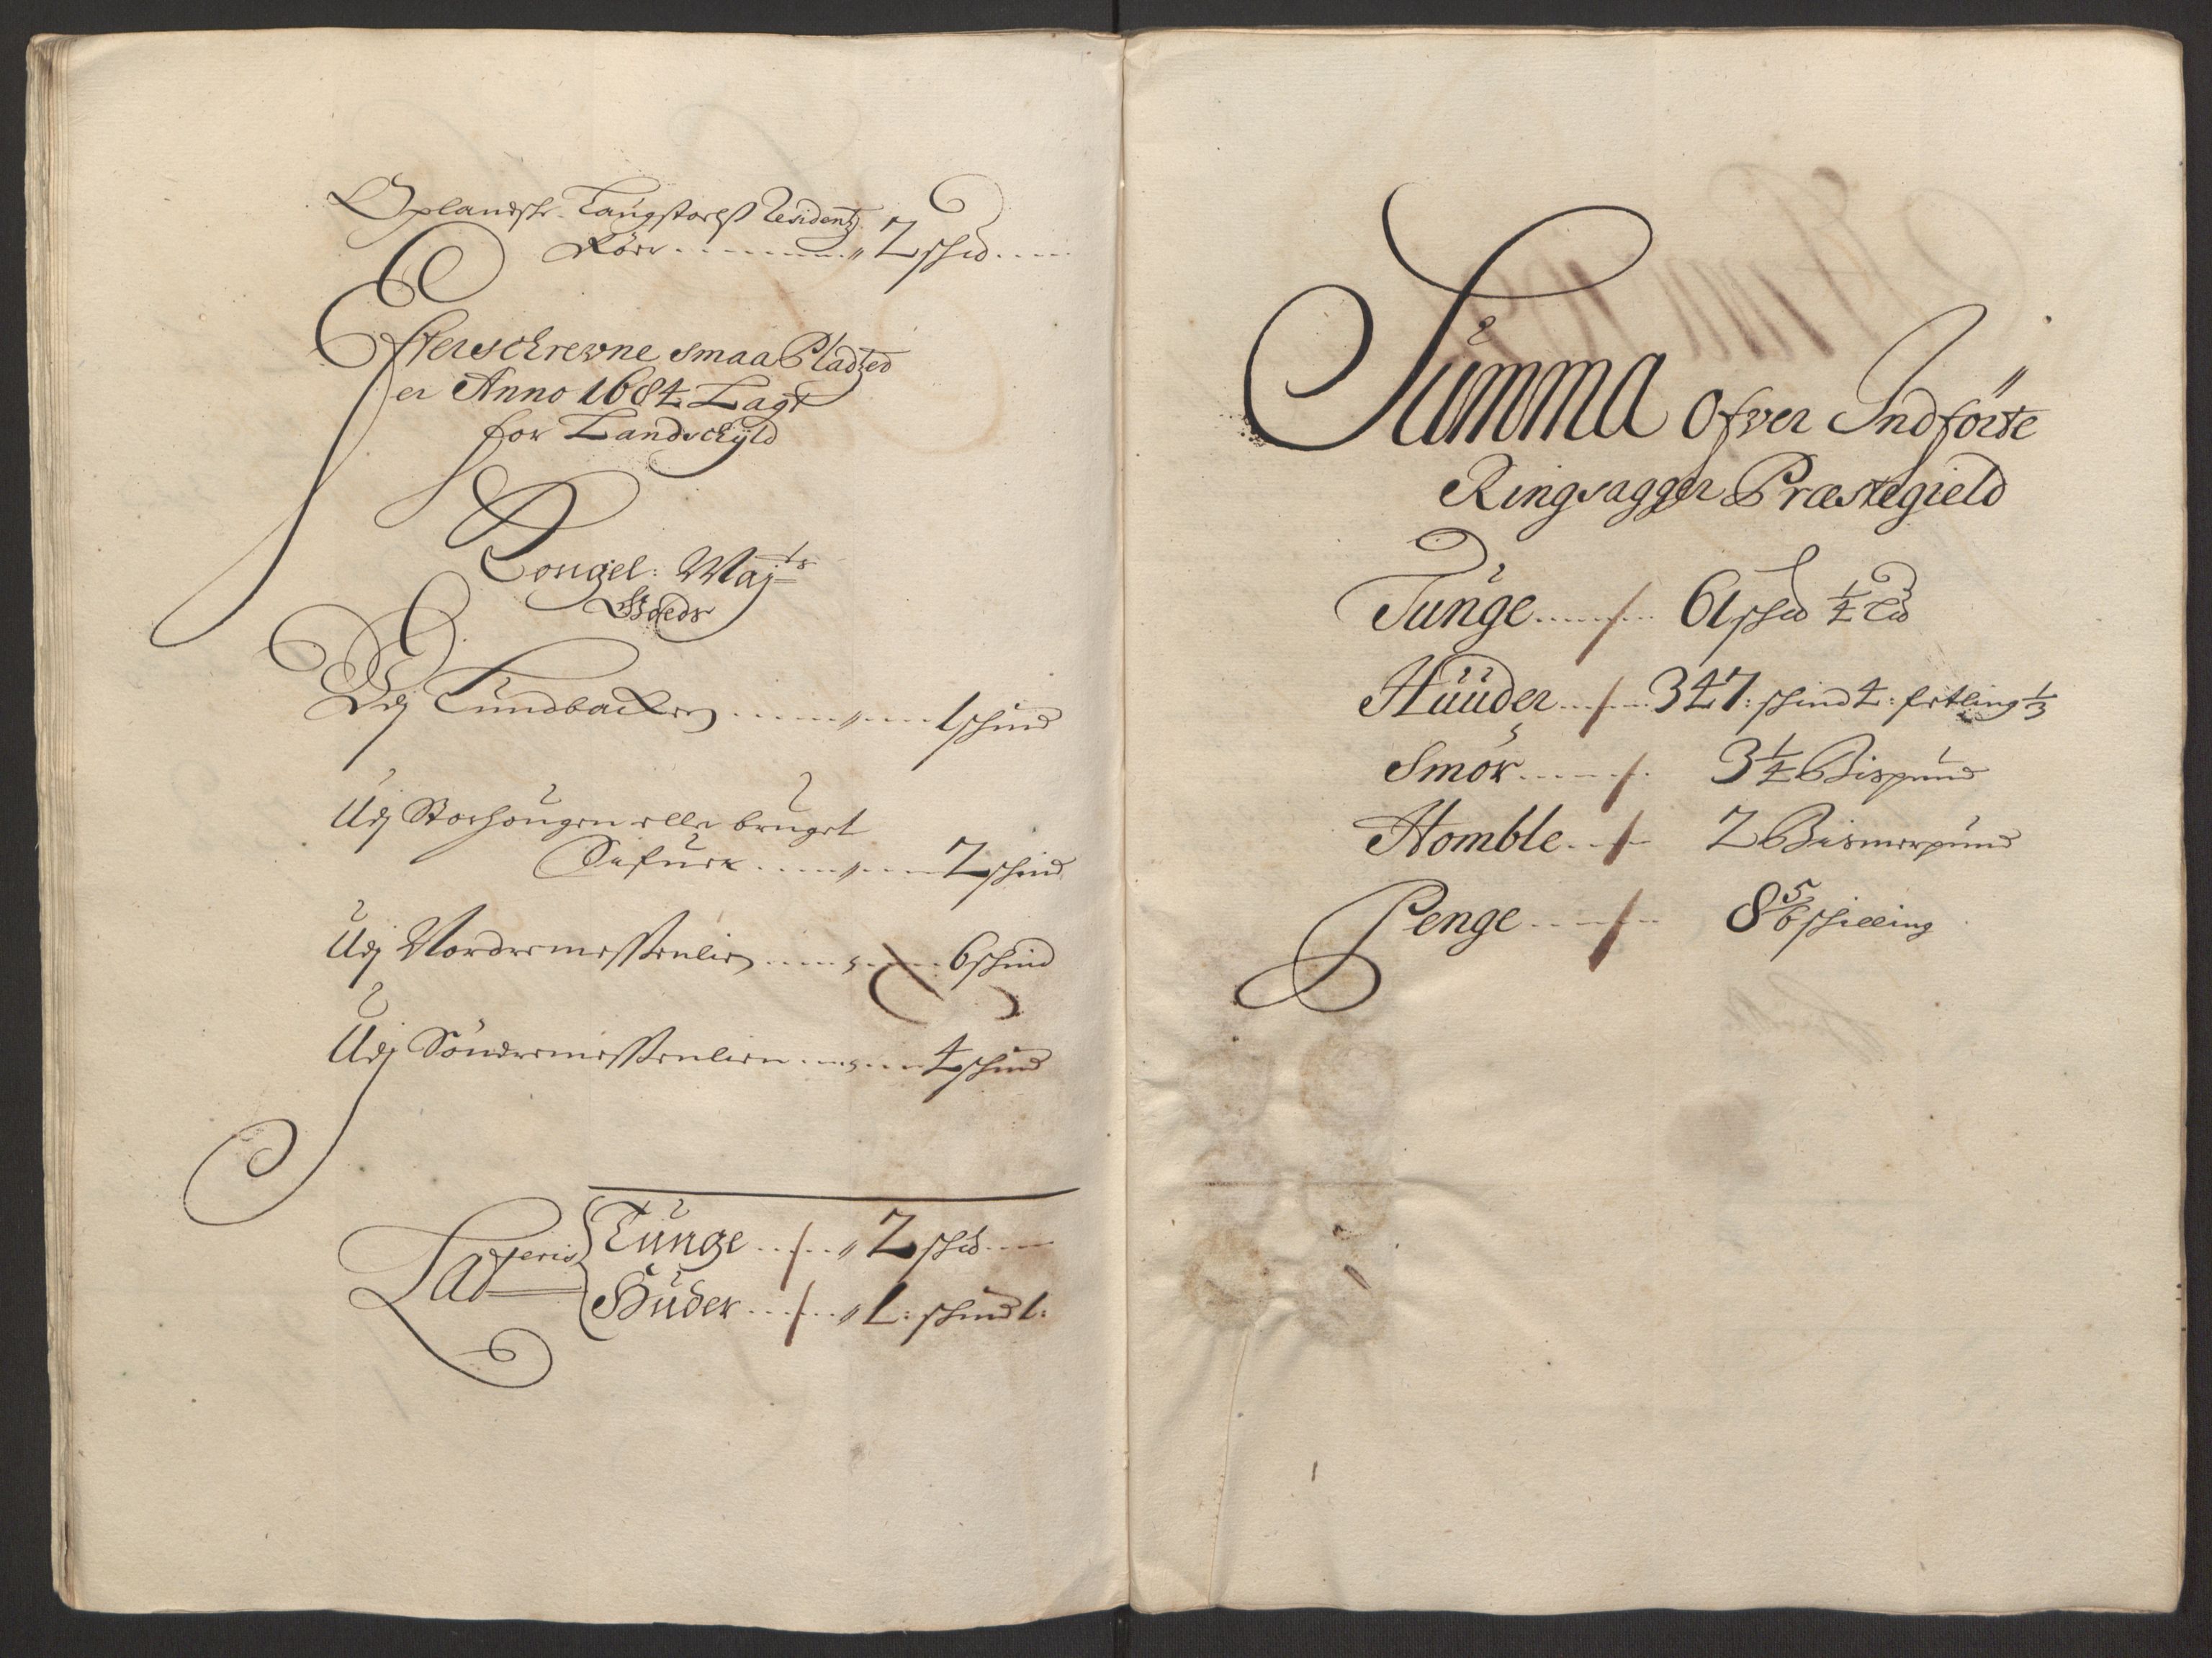 Oplandsk. Laugstoelß Residentz
Körr ......... „ 2 schd ....
Efterschrevne smaa Pladzed
er Anno 1684 Lagt
for Landschÿld
Kongel: Maj:ts
Goeds
Udj Lundbacken ........ 1 schind
Udj Storhougen elle bruget
........ 2 schind
Udj Nordremesstenlien ........ 6 schind
Udj Söndremesstenlien ........ 4 schind
Lateris
Tunge .../... „ 2 schd ...
Huder .../... „ 1: schind 1:
Summa Ofver Indförte
Ringsagger Præstegield
Tunge ..../.... 61 schd ¼ Ld
Huuder ..../.... 347: schind 4: fetling ⅓
Smör ..../.... 3¼ Bispund
Homble ..../.... 2 Bismerpund
Penge ..../.... 8 5/6 schilling